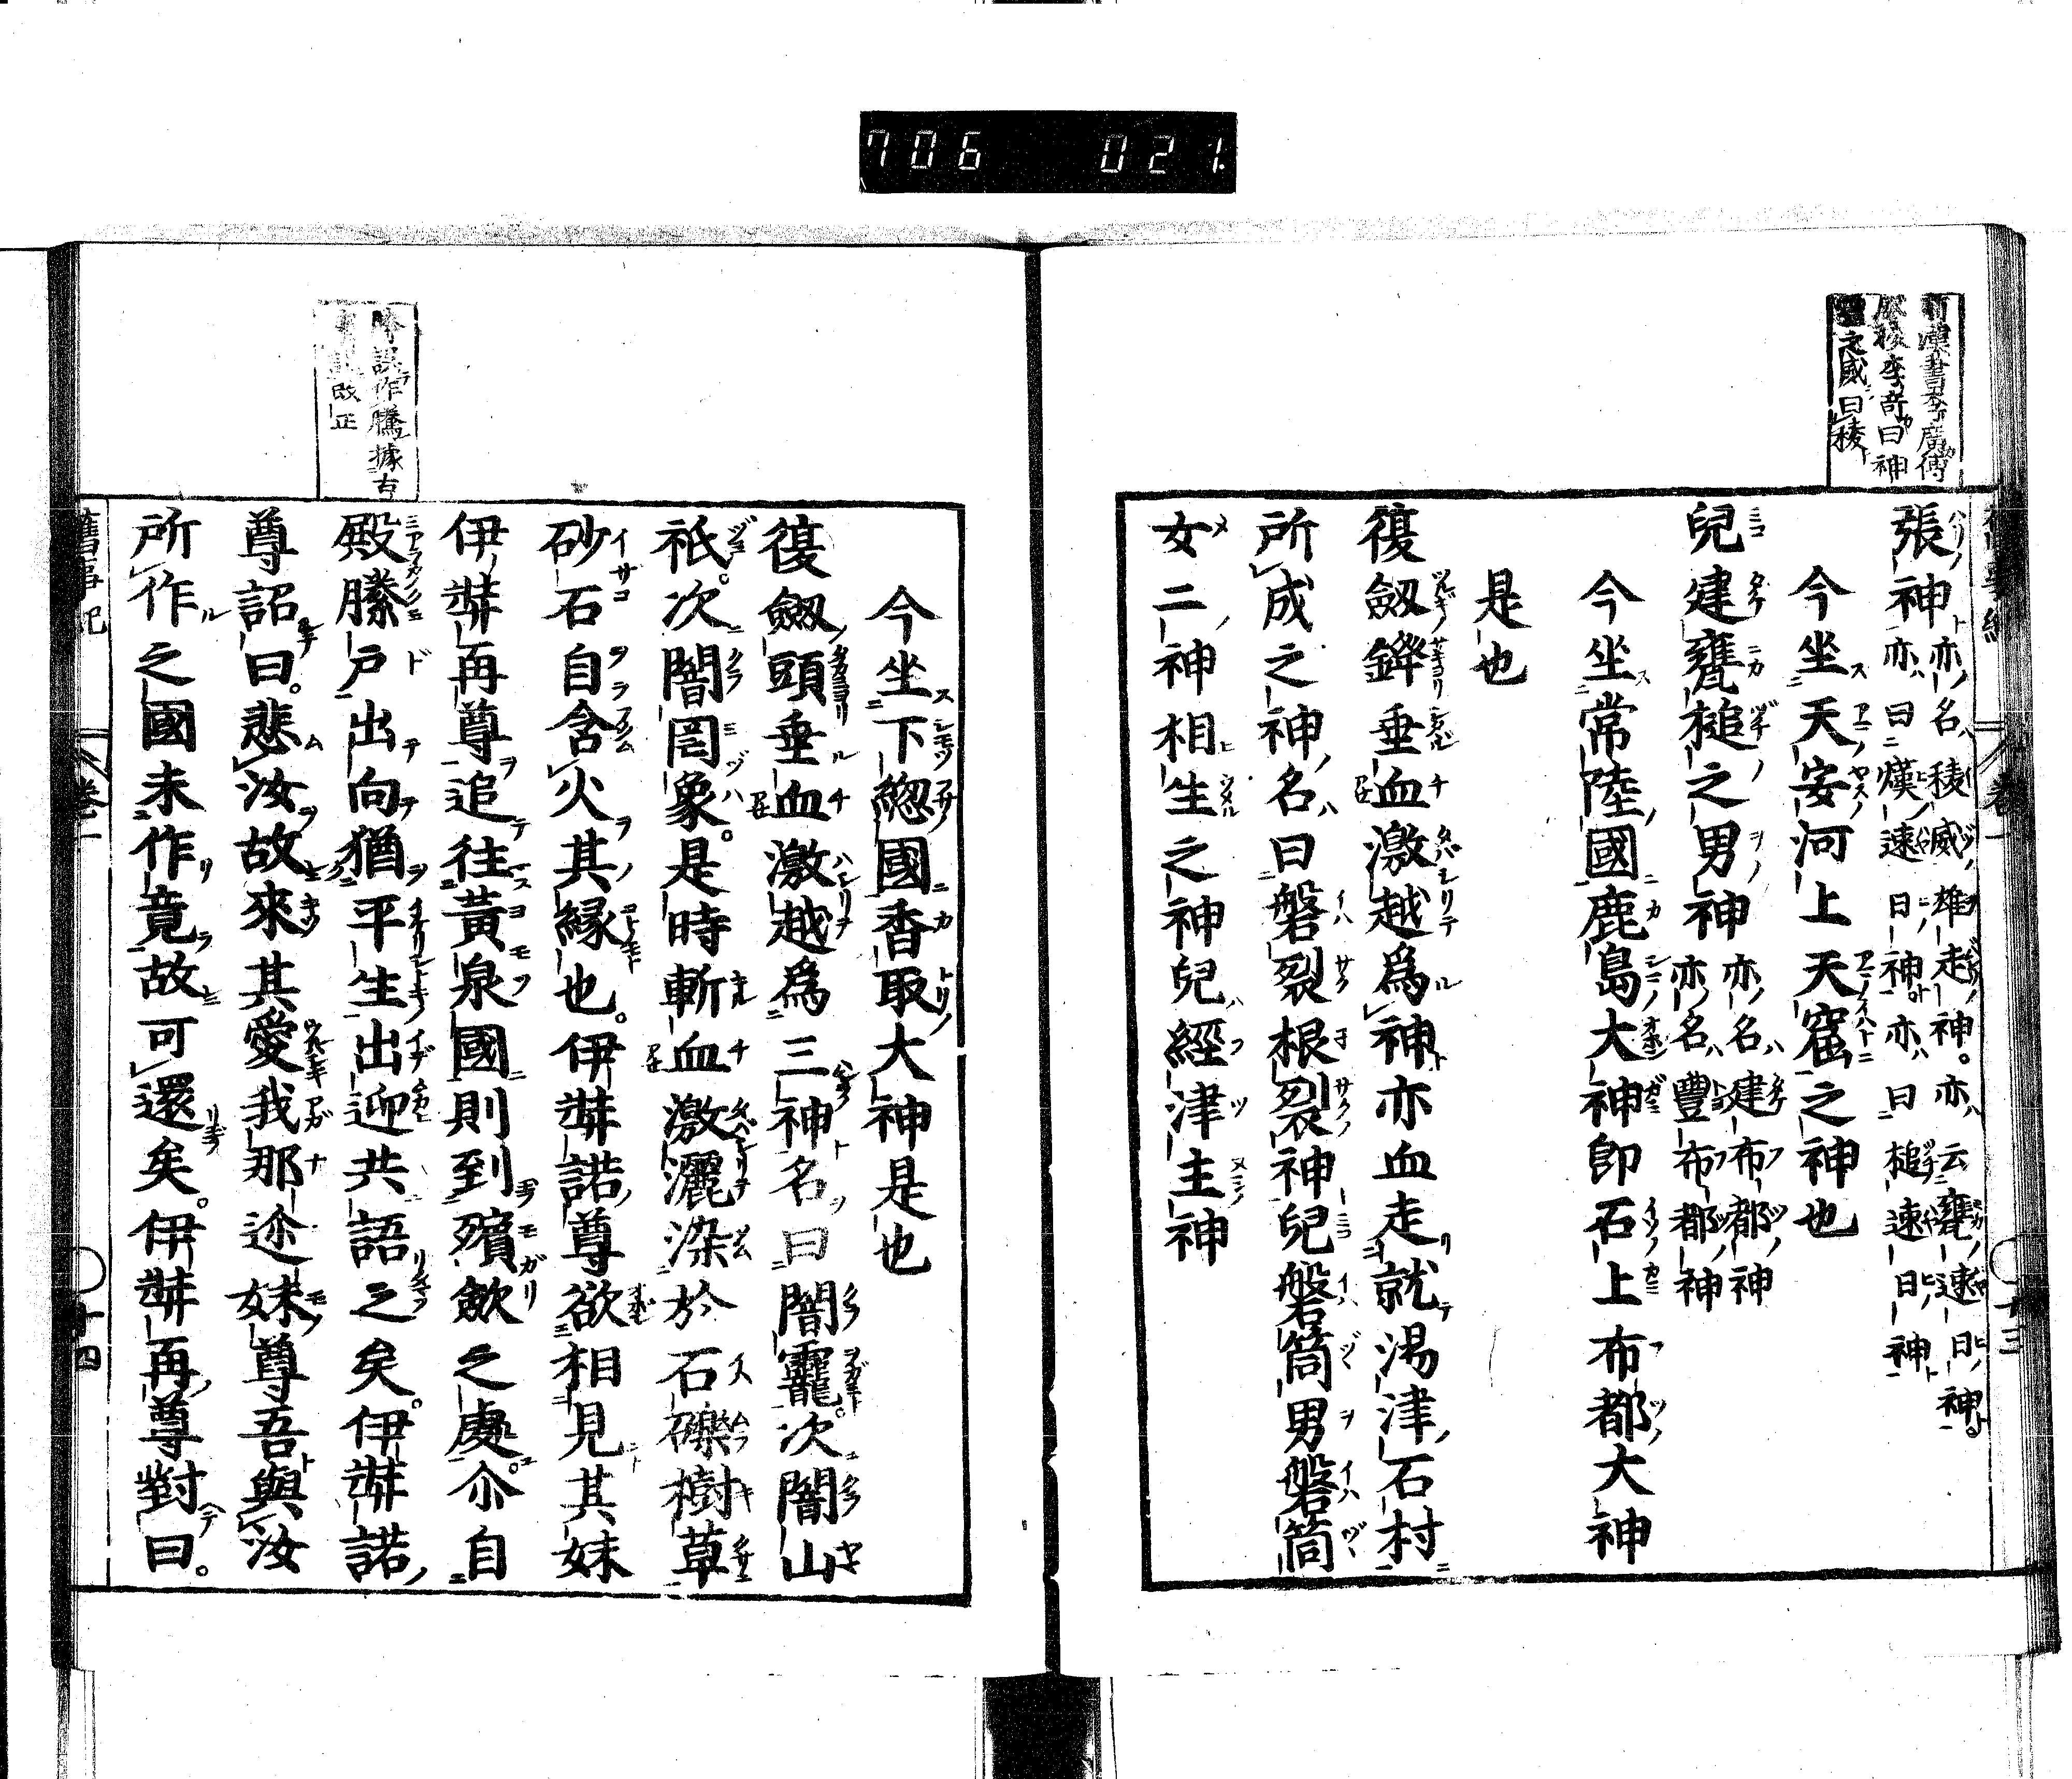 706 021
前漢書李廣傳
威稜李奇曰神
靈之威曰稜
張神亦名稜威雄走神。亦云甕速日神。
亦曰熯速日神亦曰槌速日神
今坐天安河上天窟之神也
兒建甕槌之男神亦名建布都神
亦名豐布都神
今坐常陸國鹿島大神即石上布都大神
是也
復劔鋒垂血激越爲神亦血走就湯津石村
所成之神名曰磐裂根裂神兒磐筒男磐筒
女二神相生之神兒經津主神
今坐下緫國香取大神是也
復劔頭垂血激越爲三神名曰闇龗次闇山
祇。次闇罔象。是時斬血激灑染於石礫樹草
砂石自含火其縁也。伊弉諾尊欲相見其妹
伊弉再尊追往黃泉國則到殯斂之處。尒自
殿縢戸出向猶平生出迎共語之矣。伊弉諾
尊詔曰。悲汝故來其愛我那迩妹尊吾與汝
所作之國未作竟故可還矣。伊弉再尊對曰。
縢誤作騰據古
事記改正
舊事紀
卷一
十四